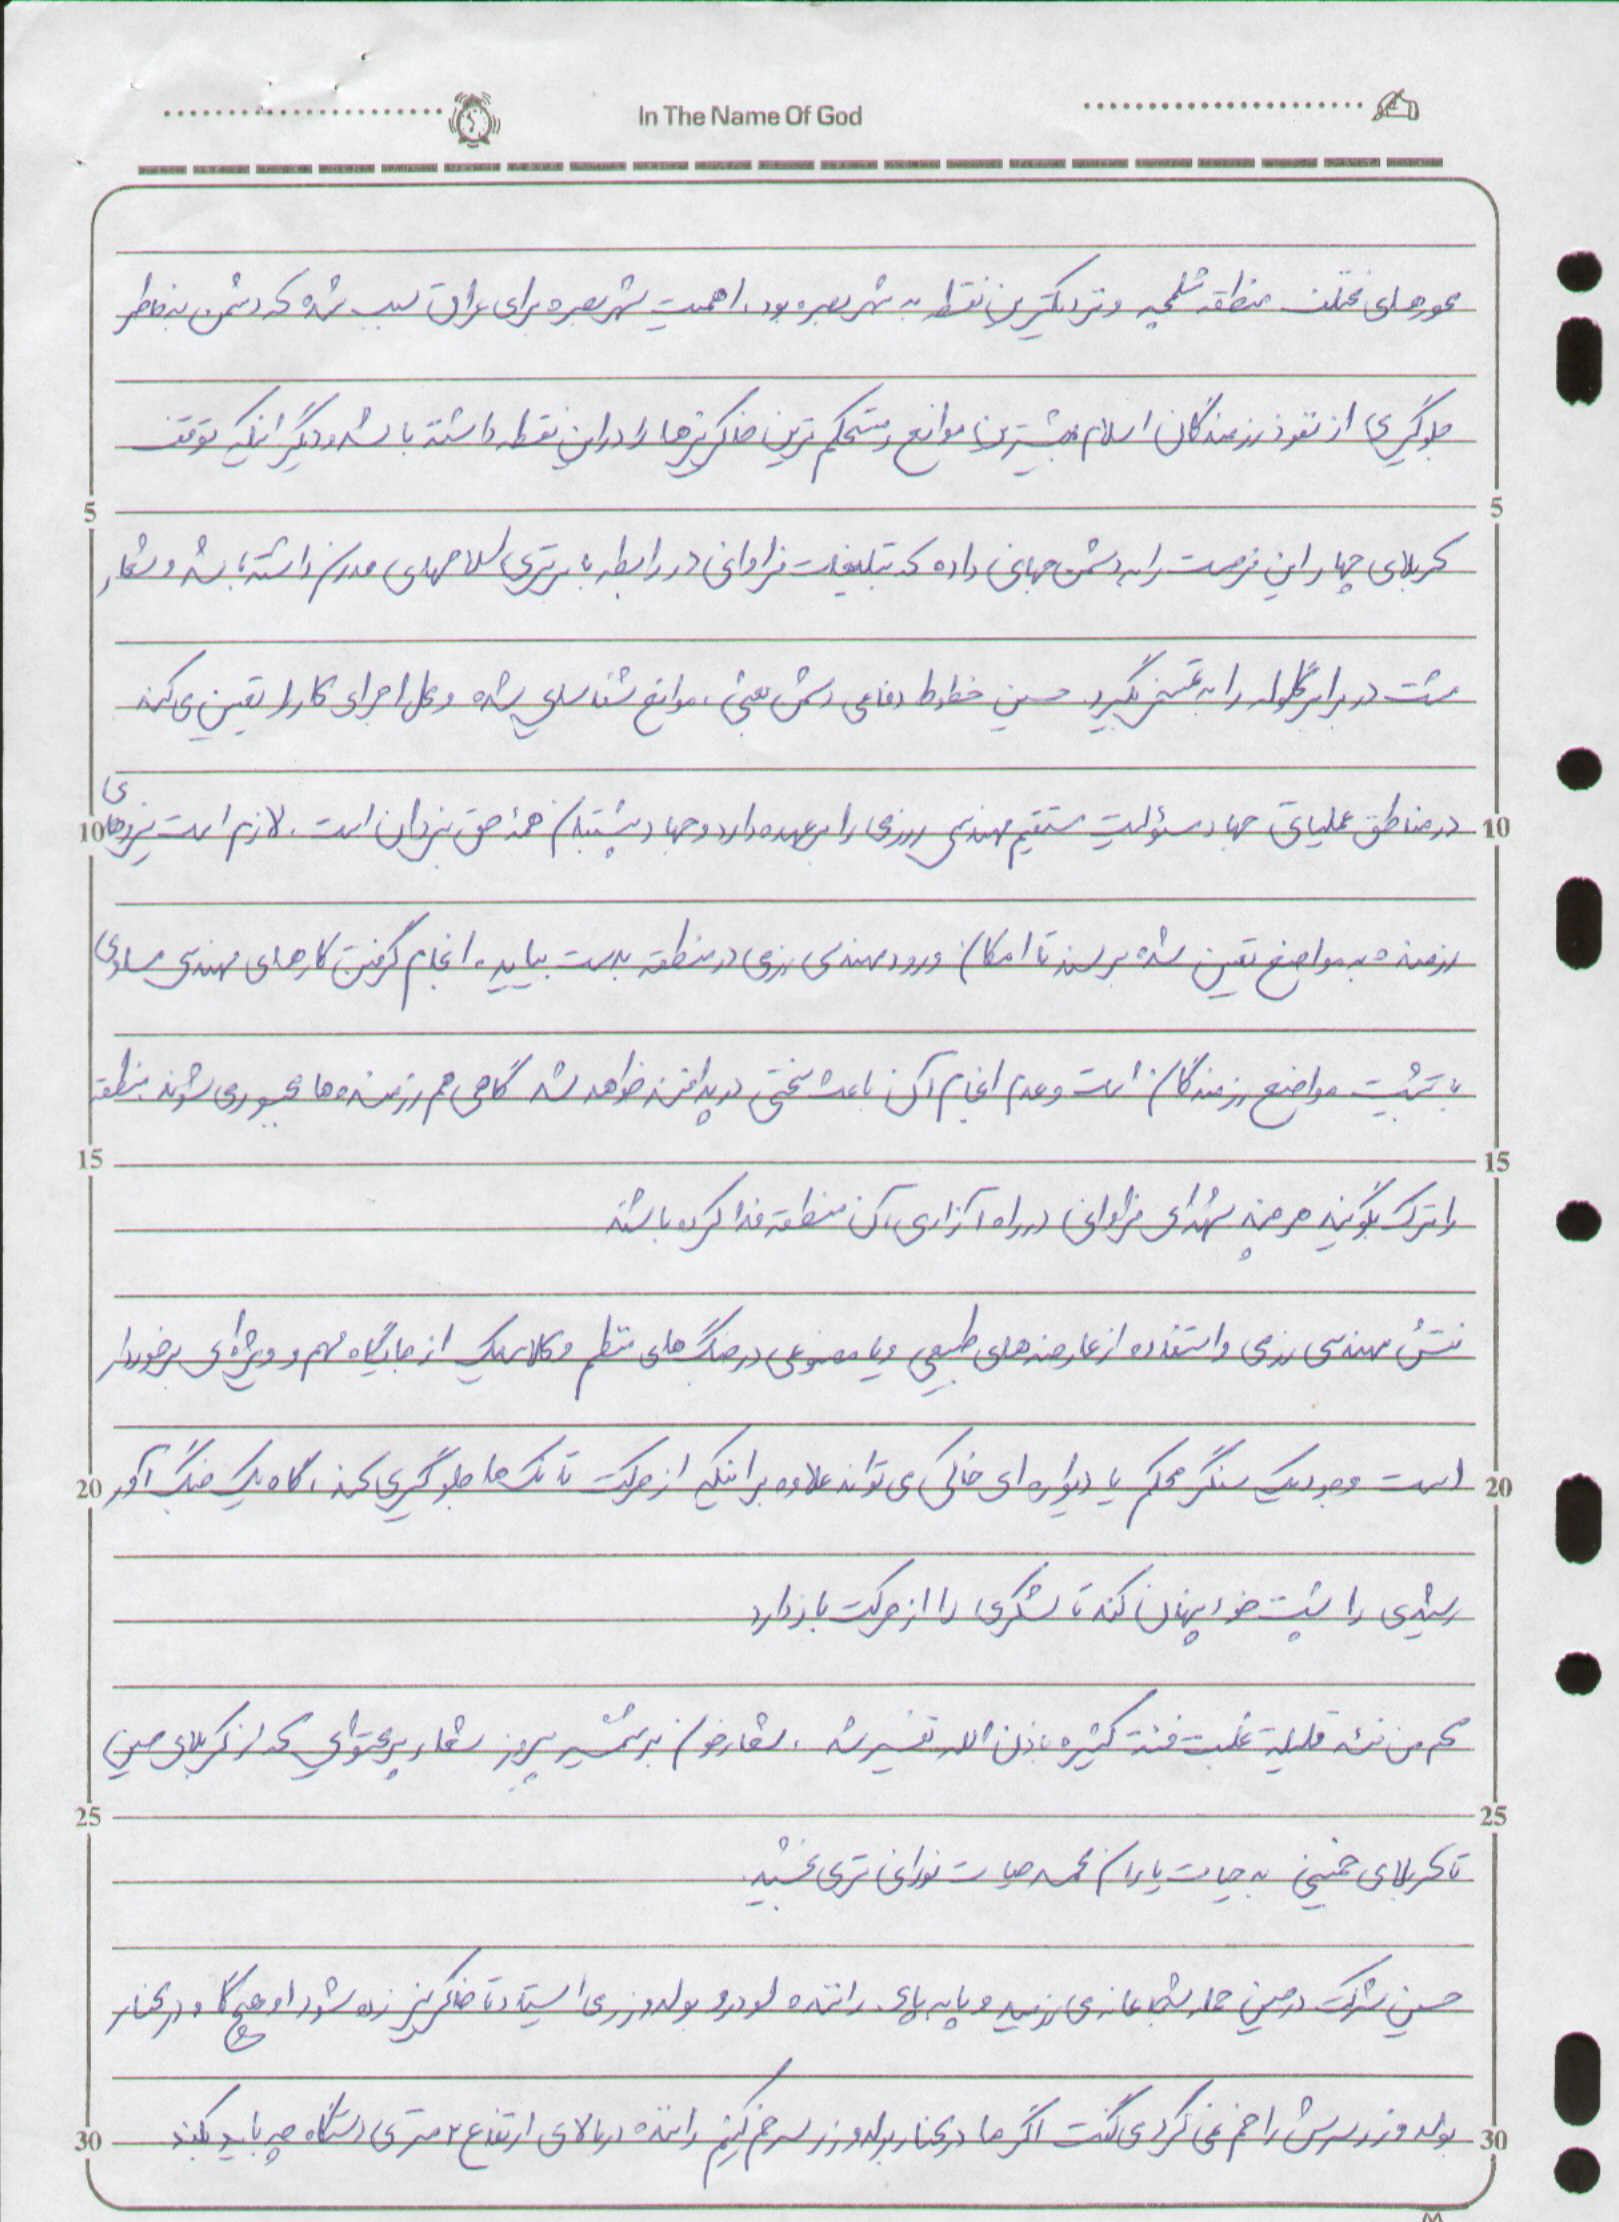 In The Name Of God
محورهای مختلف منطقه شلمچه ونزدیکترین نقطه به شهر بصره بود. اهمیت شهر بصره برای عراق سبب شده که دشمن بخاطر
جلوگیری از نفوذ رزمندگان اسلام بیشترین موانع ومستحکم ترین خاکریزها را در این نقطه داشته باشد ودیگر اینکه توقف
5 کربلای چهار این فرصت را به دشمن جهانی داده که تبلیغات فراوانی در رابطه با برتری سلاحهای مدرن داشته باشد وشعار 5
مشت در برابر گلوله را به تمسخر بگیرد. حسین خطوط دفاعی دشمن بعثی، موانع شناسایی شده ومحل اجرای کار را تعیین می کند
10 در مناطق عملیاتی جهاد مسئولیت مستقیم مهندسی رزمی را بر عهده دارد وجهاد پشتیبان همهٔ حق پرستان است. لازم است نیروهای 10
رزمنده به مواضع تعیین شده برسند تا امکان ورود مهندسی رزمی در منطقه بدست بیاید. انجام گرفتن کارهای مهندسی مساوی
با تثبیت مواضع رزمندگان است وعدم انجام آن باعث سختی در پدافند خواهد شد گاهی هم رزمنده ها مجبور می شوند منطقه
15 15
را ترک بگویند هر چند شهدای فراوانی در راه آزادی آن منطقه فدا کرده باشند
نقش مهندسی رزمی واستفاده از عارضه های طبیعی ویا مصنوعی در جنگ های منظم وکلاسیک از جایگاه مهم و ویژه ای برخوردار
20 است وجود یک سنگر محکم یا دیواره ای خاکی می تواند علاوه بر اینکه از حرکت تانک ها جلوگیری کند، گاه یک جنگ آور 20
رشیدی را پشت خود پنهان کند تا لشگری را از حرکت باز دارد
کم من فئه قلیلة غلبت فئة کثیره باذن الله تفسیر شد، شعار خون بر شمشیر پیروز شعار پر محتوایی که از کربلای حسین
25 25
تا کربلای خمینی به حیات یاران محمد حیات نورانی تری بخشید.
حسین شرکت در حین حمله شجاعانه می رزمید و پا به پای راننده لودر و بولدوزر می ایستاد تا خاکریز زده شود او هیچ گاه در کنار
30 بولدوزر سرش را خم نمی کرد می گفت اگر ما در کنار بولدوزر سر خم کنیم راننده در بالای ارتفاع ۲ متری دستگاه چه باید بکند 30